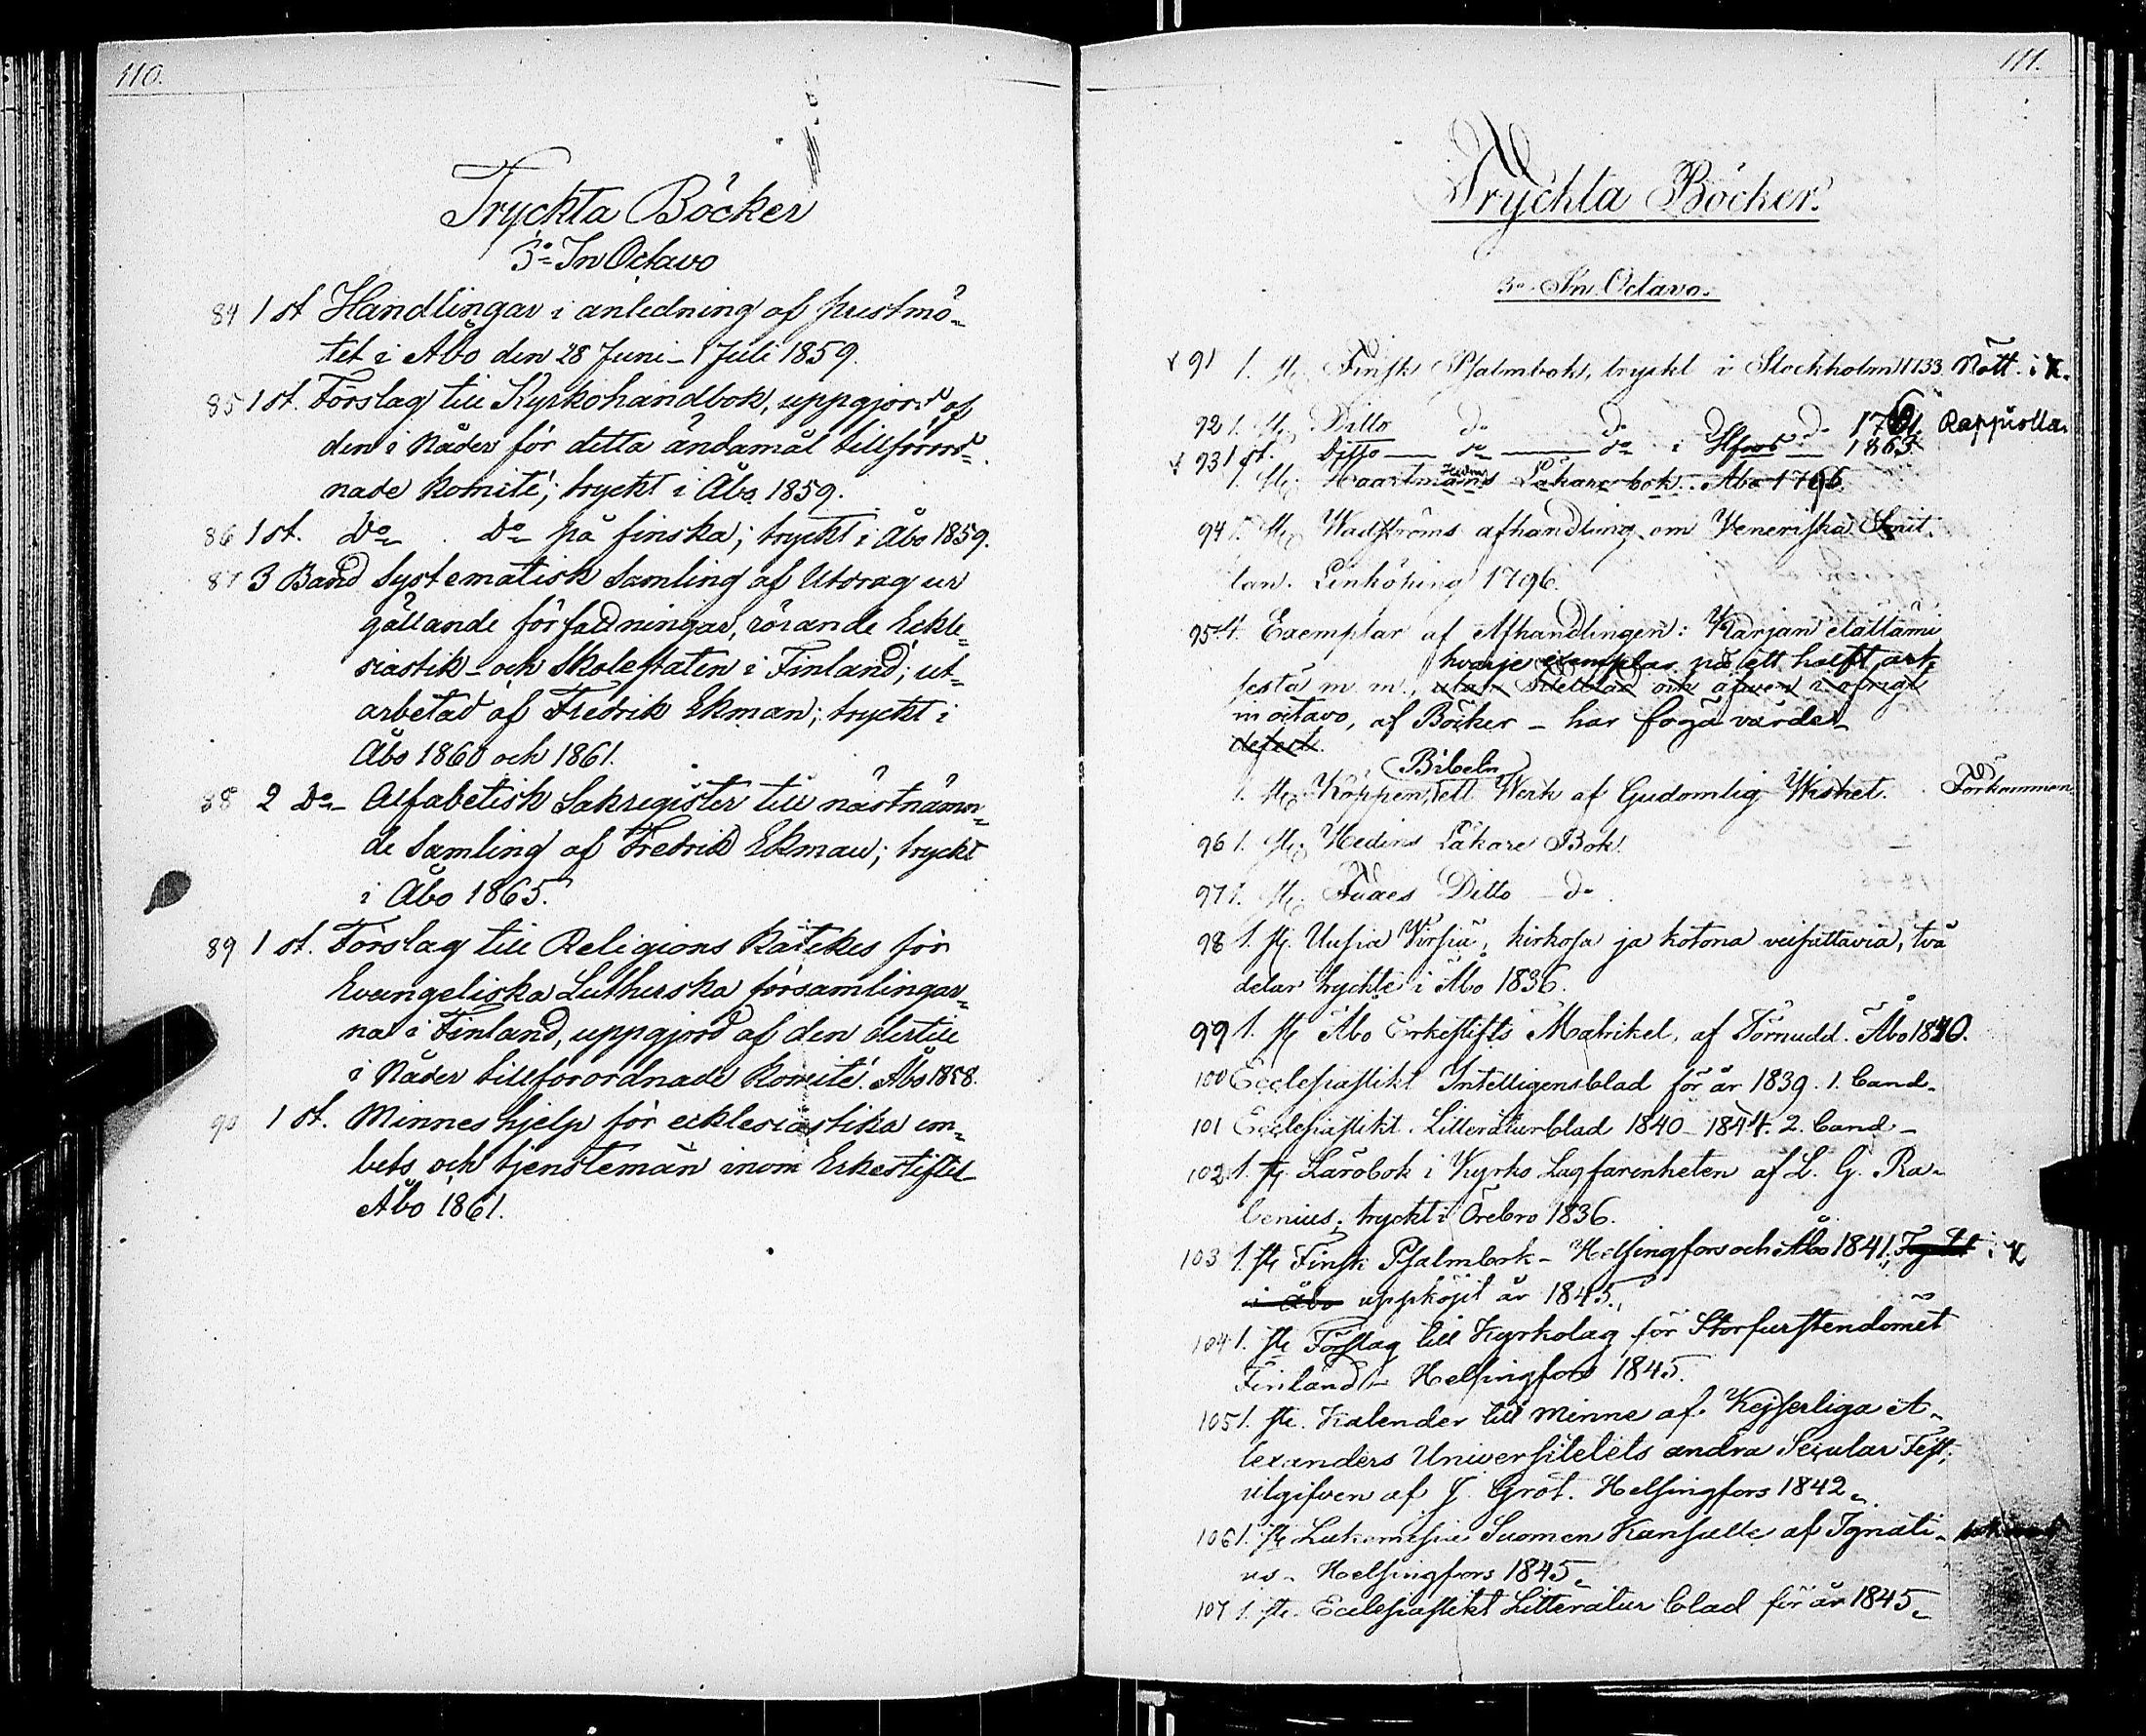 110.
Tryckta Böcker
3:o In Octavo
84 1 st Handlingar i anledning af prestmö-
tet i Åbo den 28 Juni - 1 Juli 1859.
85 1 st. Förslag till Kyrkohandbok, uppgjord af
den i Nåder för detta ändamål tillförord-
nade Komité; tryckt i Åbo 1859.
86 1 st. do do på finska; tryckt i Åbo 1859.
87 3 Band Systematisk Samling af Utdrag ur
gällande författningar, rörande Eckle-
siastik- och Skolestaten i Finland; ut-
arbetad af Fredrik Ekman; tryckt i
Åbo 1860 och 1861.
88 2 Do Alfabetisk Sakregister till nästnämn-
de Samling af Fredrik Ekman; tryckt
i Åbo 1865.
89 1 st. Förslag till Religions Katekes för
Evangeliska Lutherska församlingar-
na i Finland, uppgjord af den dertill
i Nåder tillförordnade Komité. Åbo 1858.
90 1 st. Minneshjelp för ecklesiastika em-
bets och tjenstemän inom Erkestiftet
Åbo 1861.
111.
Tryckta Böcker.
3o In Octavo.
91 1. st. Finsk Psalmbok, tryckt i Stockholm 1733. Nött. i K.
92 1. st. Ditto do do do 1761. Rappiolla.
93 1 st. Ditto do do i Hfors 1863
1. st. Haartmans Läkare bok. Åbo 1796.
94 1. st. Wadströms afhandling om Veneriska Smit-
tan. Linköping 1796.
95 Exemplar af Afhandlingen: Karjan elättämi
hvarje exemplar på ett halft ark
sestä m. m., utan Titelblad och äfven i öfrigt
in octavo, af Böcker - har föga värde
defect.
Bibeln
1. st. Köppen, ett Werk af Gudomlig Wishet. Förkommen
96 1. st. Hedins Läkare Bok.
97 1. st. Ditto do
98 1. st. Uusia Virsiä, kirkosa ja kotona veisattavia, två
delar tryckte i Åbo 1836.
99 1. st Åbo Erkestifts Matrikel, af Törnudd. Åbo 1840.
100 Ecclesiastikt Intelligensblad för år 1839. 1. band.
101 Ecclesiastikt Litteraturblad 1840-1844. 2. band
102 1. st Lärobok i Kyrko Lagfarenheten af L. G. Ra-
benius; tryckt i Örebro 1836.
103 1. st Finsk Psalmbok - Helsingfors och Åbo 1841. Tryckt i K
i Åbo uppköpt år 1845.
104 1. st Förslag till Kyrkolag för Storfurstendömet
Finland - Helsingfors 1845.
105 1. st. Kalender till minne af Kejserliga A-
lexanders Universitetets andra Secular Fest,
utgifven af J. Grot. Helsingfors 1842.
106 1. st Lukemisia Suomen Kansalle af Ignati-
us. Helsingfors 1845.
107 1. st. Ecclesiastikt Litteratur blad för år 1845.